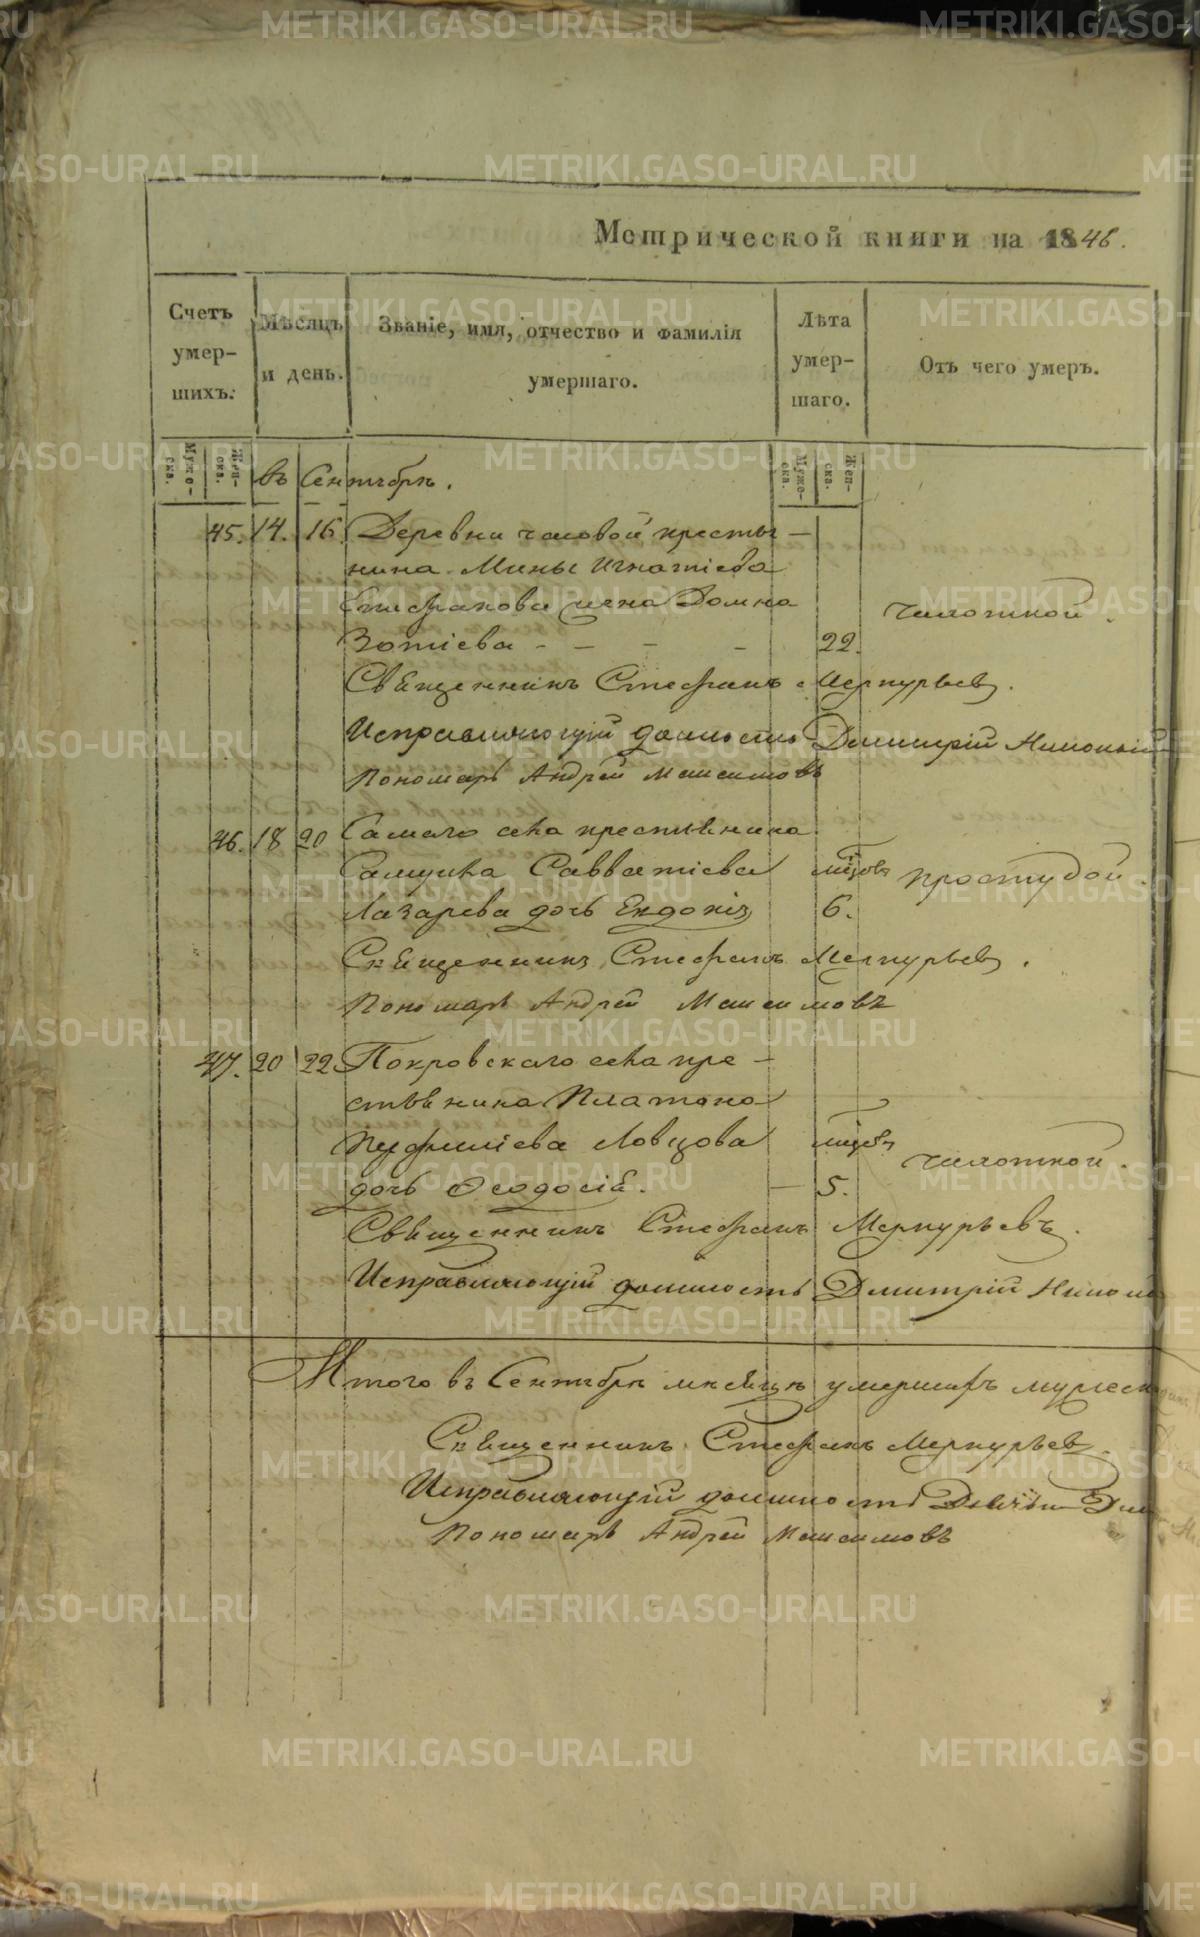 Метрической книги на 1846.
Счетъ умер- шихъ.
Мѣсяцъ и день.
Званіе, имя, отчество и фамилія умершаго.
Лѣта умер- шаго.
Отъ чего умеръ.
Муже- ска.
Жен- ска.
Муже- ска.
Жен- ска.
въ Сентябрѣ.
45. 14. 16. Деревни часовой кресть-
нина Мины Игнатіева
Епифанова жена Домна чахоткой.
Зотіева - - - - 22.
Священникъ Стефанъ Меркурьевъ.
Исправляющій должность Дмитрій
Пономарь Андрей Максимовъ
46. 18 20 Самаго села крестьянина
Савватіева мцовъ простудой.
Лазарева дочь Евдокія 6.
Священникъ Стефанъ Меркурьевъ.
Пономарь Андрей Максимовъ
47. 20 22 Покровскаго села кре-
стьянина Платона
Ловцова мцовъ чахоткой.
дочь Ѳеодосія. — 5.
Священникъ Стефанъ Меркурьевъ.
Исправляющій должность Дмитрій
Итого въ Сентябрѣ мѣсяцѣ умершихъ мужеск
Священникъ Стефанъ Меркурьевъ.
Исправляющій должность
Пономарь Андрей Максимовъ
METRIKI.GASO-URAL.RU